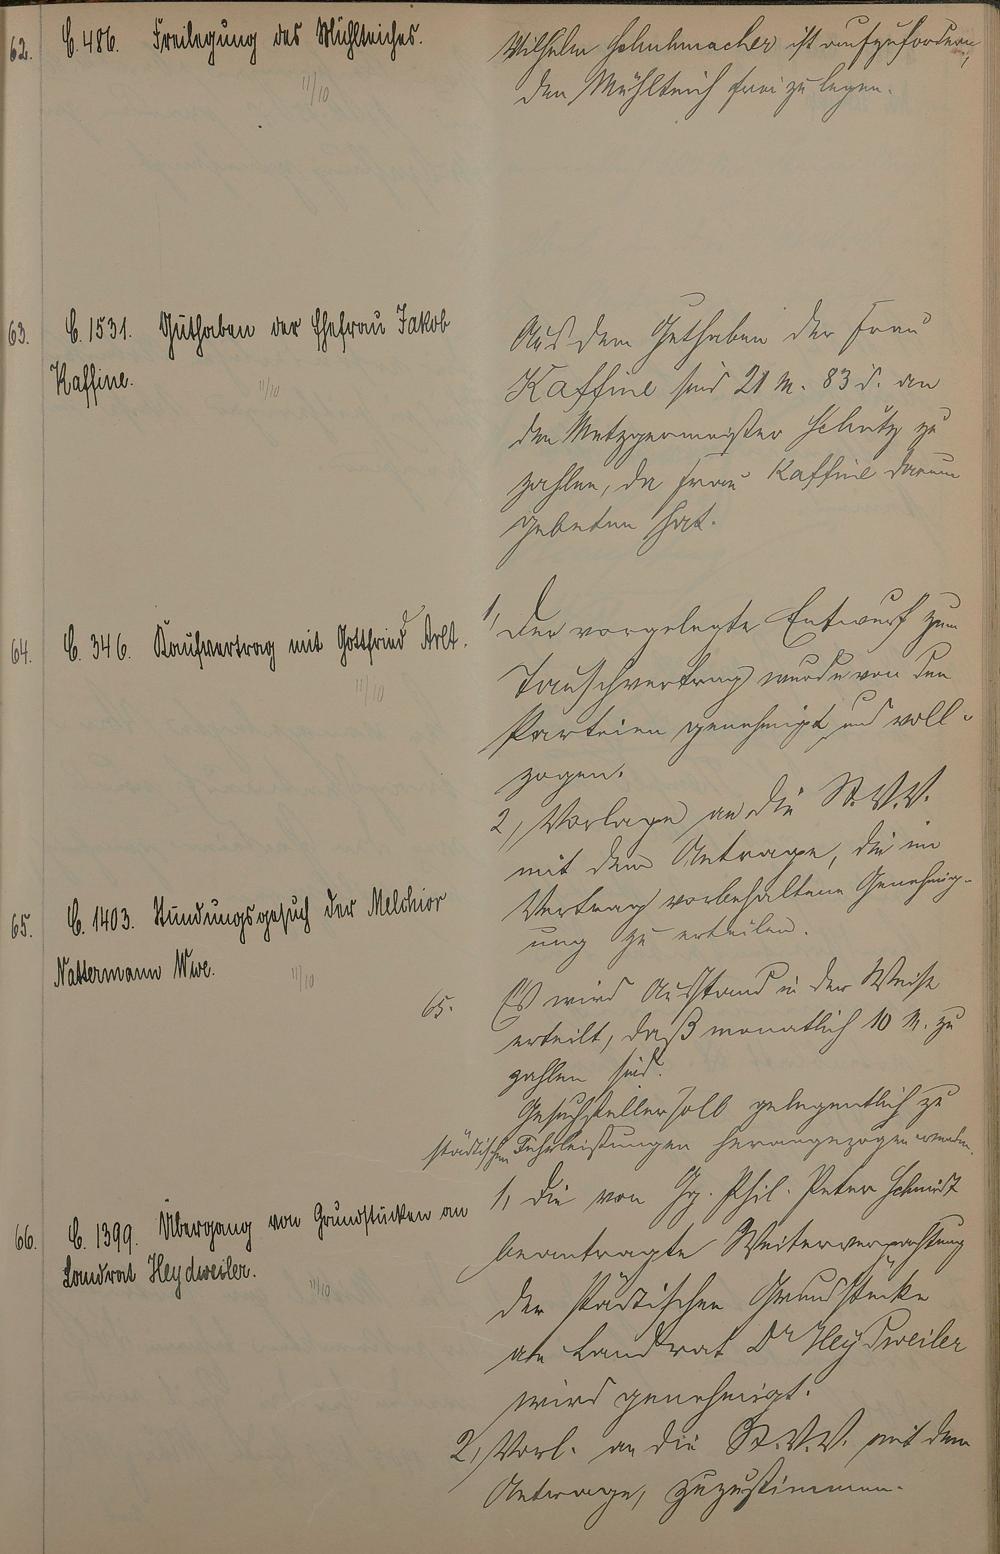 62. C. 486. Freilegung des Mühlteiches.
11/10
Wilhelm Schuhmacher ist aufzufordern,
den Mühlteich frei zu legen.
63. C. 1531. Guthaben der Ehefrau Jakob
Kaffine.
11/10
Aus dem Guthaben der Frau
Kaffine sind 21 M. 83 d. an
den Metzgermeister Schütz zu
zahlen, da Frau Kaffine darum
gebeten hat.
64. C. 346. Kaufvertrag mit Gottfried Arlt.
11/10
1, Der vorgelegte Entwurf zum
Tauschvertrag wurde von den
Parteien genehmigt und voll-
zogen.
2, Vorlage an die St.V.V.
mit dem Antrage, die im
Vertrag vorbehaltene Genehmig-
ung zu erteilen.
65. C. 1403. Stundungsgesuch der Melchior
Nattermann Wwe.
11/10
65. Es wird Ausstand in der Weise
erteilt, daß monatlich 10 M. zu
zahlen sind.
Gesuchsteller soll gelegentlich zu
städtischen Fuhrleistungen herangezogen werden.
66. C. 1399. Übergang von Grundstücken an
Landrat Heydweiler.
11/10
1, Die von Hg. Phil. Peter Schmidt
beantragte Weiterverpachtung
der städtischen Grundstücke
an Landrat Dr Heydweiler
wird genehmigt.
2, Vorl. an die St.V.V. mit dem
Antrage, zuzustimmen.